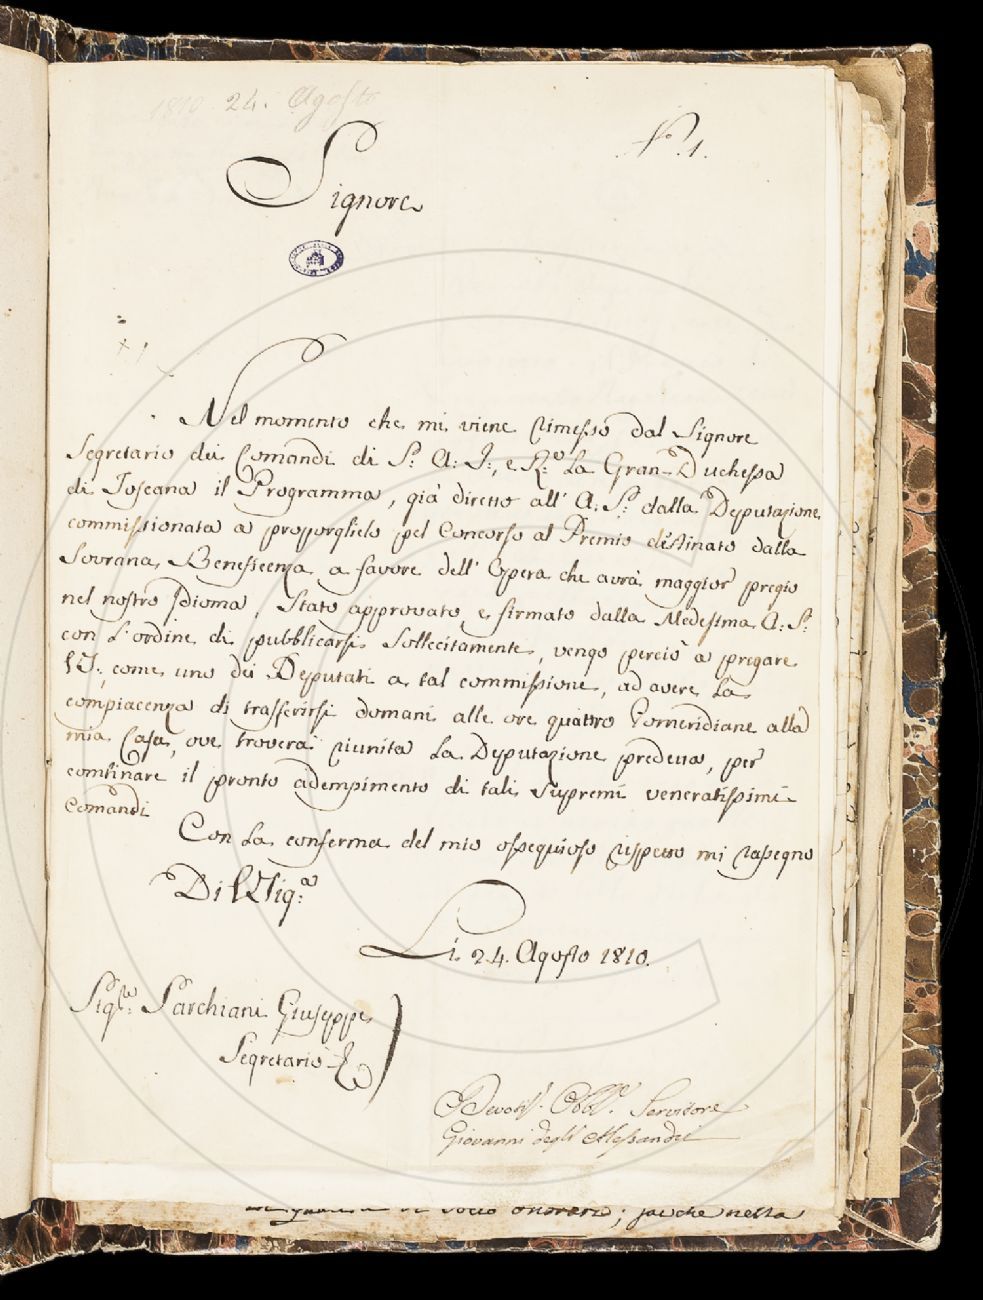 1810. 24. Agosto
N.° 1.
Signore
Nel momento che mi viene rimesso dal Signore
Segretario dei Comandi di S.: A: I:, e R.° La Gran-Duchessa
di Toscana il Programma, già diretto all' A: S.: dalla Deputazione
commissionata a proporglielo pel Concorso al Premio destinato dalla
Sovrana Beneficenza a favore dell' Opera che avrà maggior pregio
nel nostro Idioma, Stato approvato, e firmato dalla Medesima A: S.:
con L'ordine di pubblicarsi Sollecitamente, vengo perciò a pregare
V.S:, come uno dei Deputati a tal commissione, ad avere La
compiacenza di trasferirsi domani alle ore quattro Pomeridiane alla
mia Casa, ove troverà riunita La Deputazione predetta, per
combinare il pronto adempimento di tali Supremi veneratissimi
Comandi
Con La conferma del mio ossequioso rispetto mi rassegno
Di V.Sig.ª
Li 24. Agosto 1810.
Sig.re Sarchiani Giuseppe
Segretario
Devotis. Obbl.° Servitore
Giovanni degl' Alessandri
di Socio onorario; perche nella